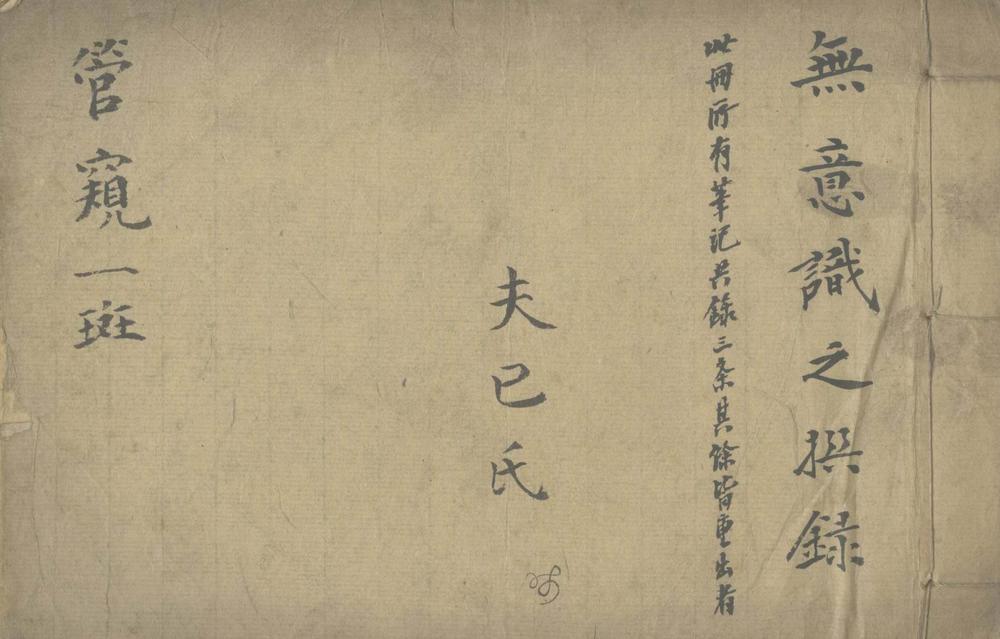 無意識之撰録
此冊所有筆记共錄三条其餘皆重出者
夫已氏
管窺一斑